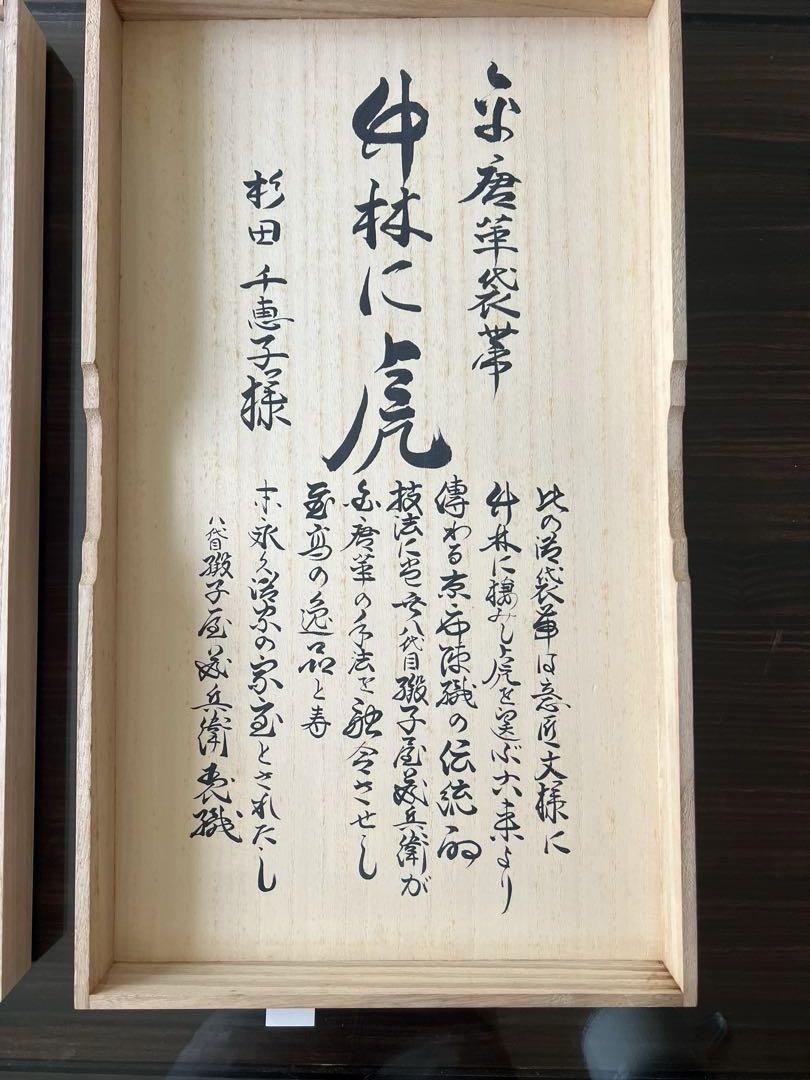 金唐革袋帯
竹林に虎
杉田千恵子様
此の御袋帯は意匠文様に
竹林に棲みし虎を選ぶ古来より
傳わる京西陣織の伝統的
技法に当世八代目緞子屋茂兵衛が
金唐革の手法を融合させし
至高の逸品と
末永久御家の家宝とされたし
八代目緞子屋茂兵衛